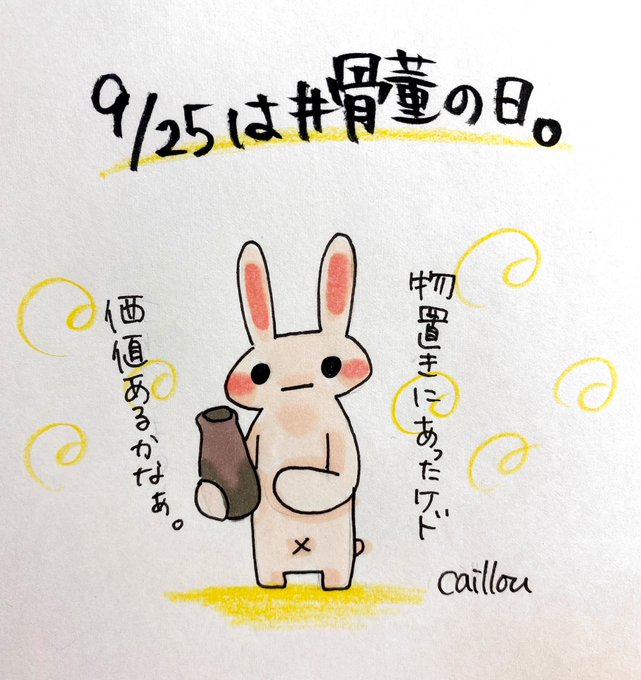 9/25は#骨董の日。
物置きにあったケド
価値あるかなぁ。
caillou